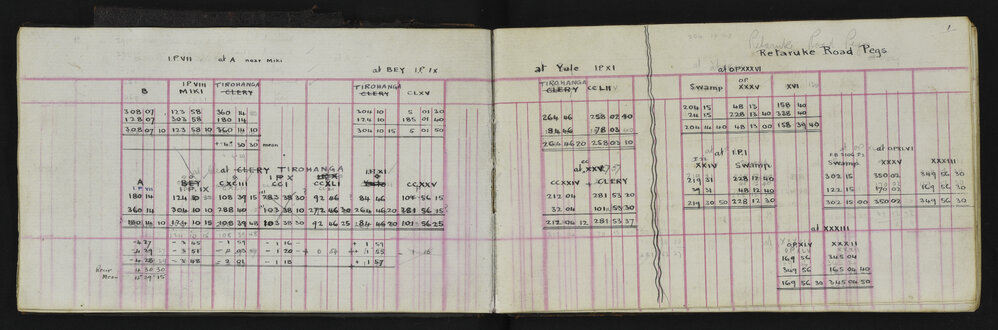 I.P.VII at A near Miki
at BEY I.P. IX
B I.P VIII MIKI TIROHANGA CLERY TIROHANGA CLERY CLXV
308 07 123 58 360 14 304 10 5 01 30
128 07 303 58 180 14 124 10 185 01 40
308 07 10 123 58 10 360 14 10 304 10 15 5 01 50
30 30 mean
at CLERY TIROHANGA
A BEY CXCIII I P X CCI CCXLI CCXXV
I.P VII I.P. IX
180 14 124 10 108 39 15 283 38 30 92 46 84 46
360 14 304 10 288 40 103 38 10 272 46 30 264 46 20 281 56 15
180 14 10 103 38 10 92 46 25 284 46 20 101 56 25
- 4 27 - 3 45 - 1 59 - 1 16 + 1 57
- 3 51 - 1 20
- 3 48 - 2 01 - 1 18 + 1 57
4 30 30
Mean 4 29 15
1
Retaruke Road Pegs
at Yule I.P XI
at OPXXXVI
TIROHANGA CLERY CCLII Swamp OP. XXXV XVI
264 46 258 02 40 204 15 48 13 158 40
84 46 78 03 24 15 228 13 40 338 40
264 46 20 258 03 10 204 14 40 48 13 00 158 39 40
at XXV
at I.P.I
at OPXLVI
CC XXIV CLERY XXIV Swamp XXXV XXXIII
212 04 281 53 20 219 31 228 12 40 302 15 350 02 349 56 30
32 04 101 53 30 39 31 48 12 40 122 15 170 02 169 56 30
212 04 12 281 53 37 219 30 50 228 12 30 302 15 00 350 02 349 56 30
at XXXIII
OP.XIV XXXII
169 56 345 04
349 56 165 04 40
169 56 30 345 04 50